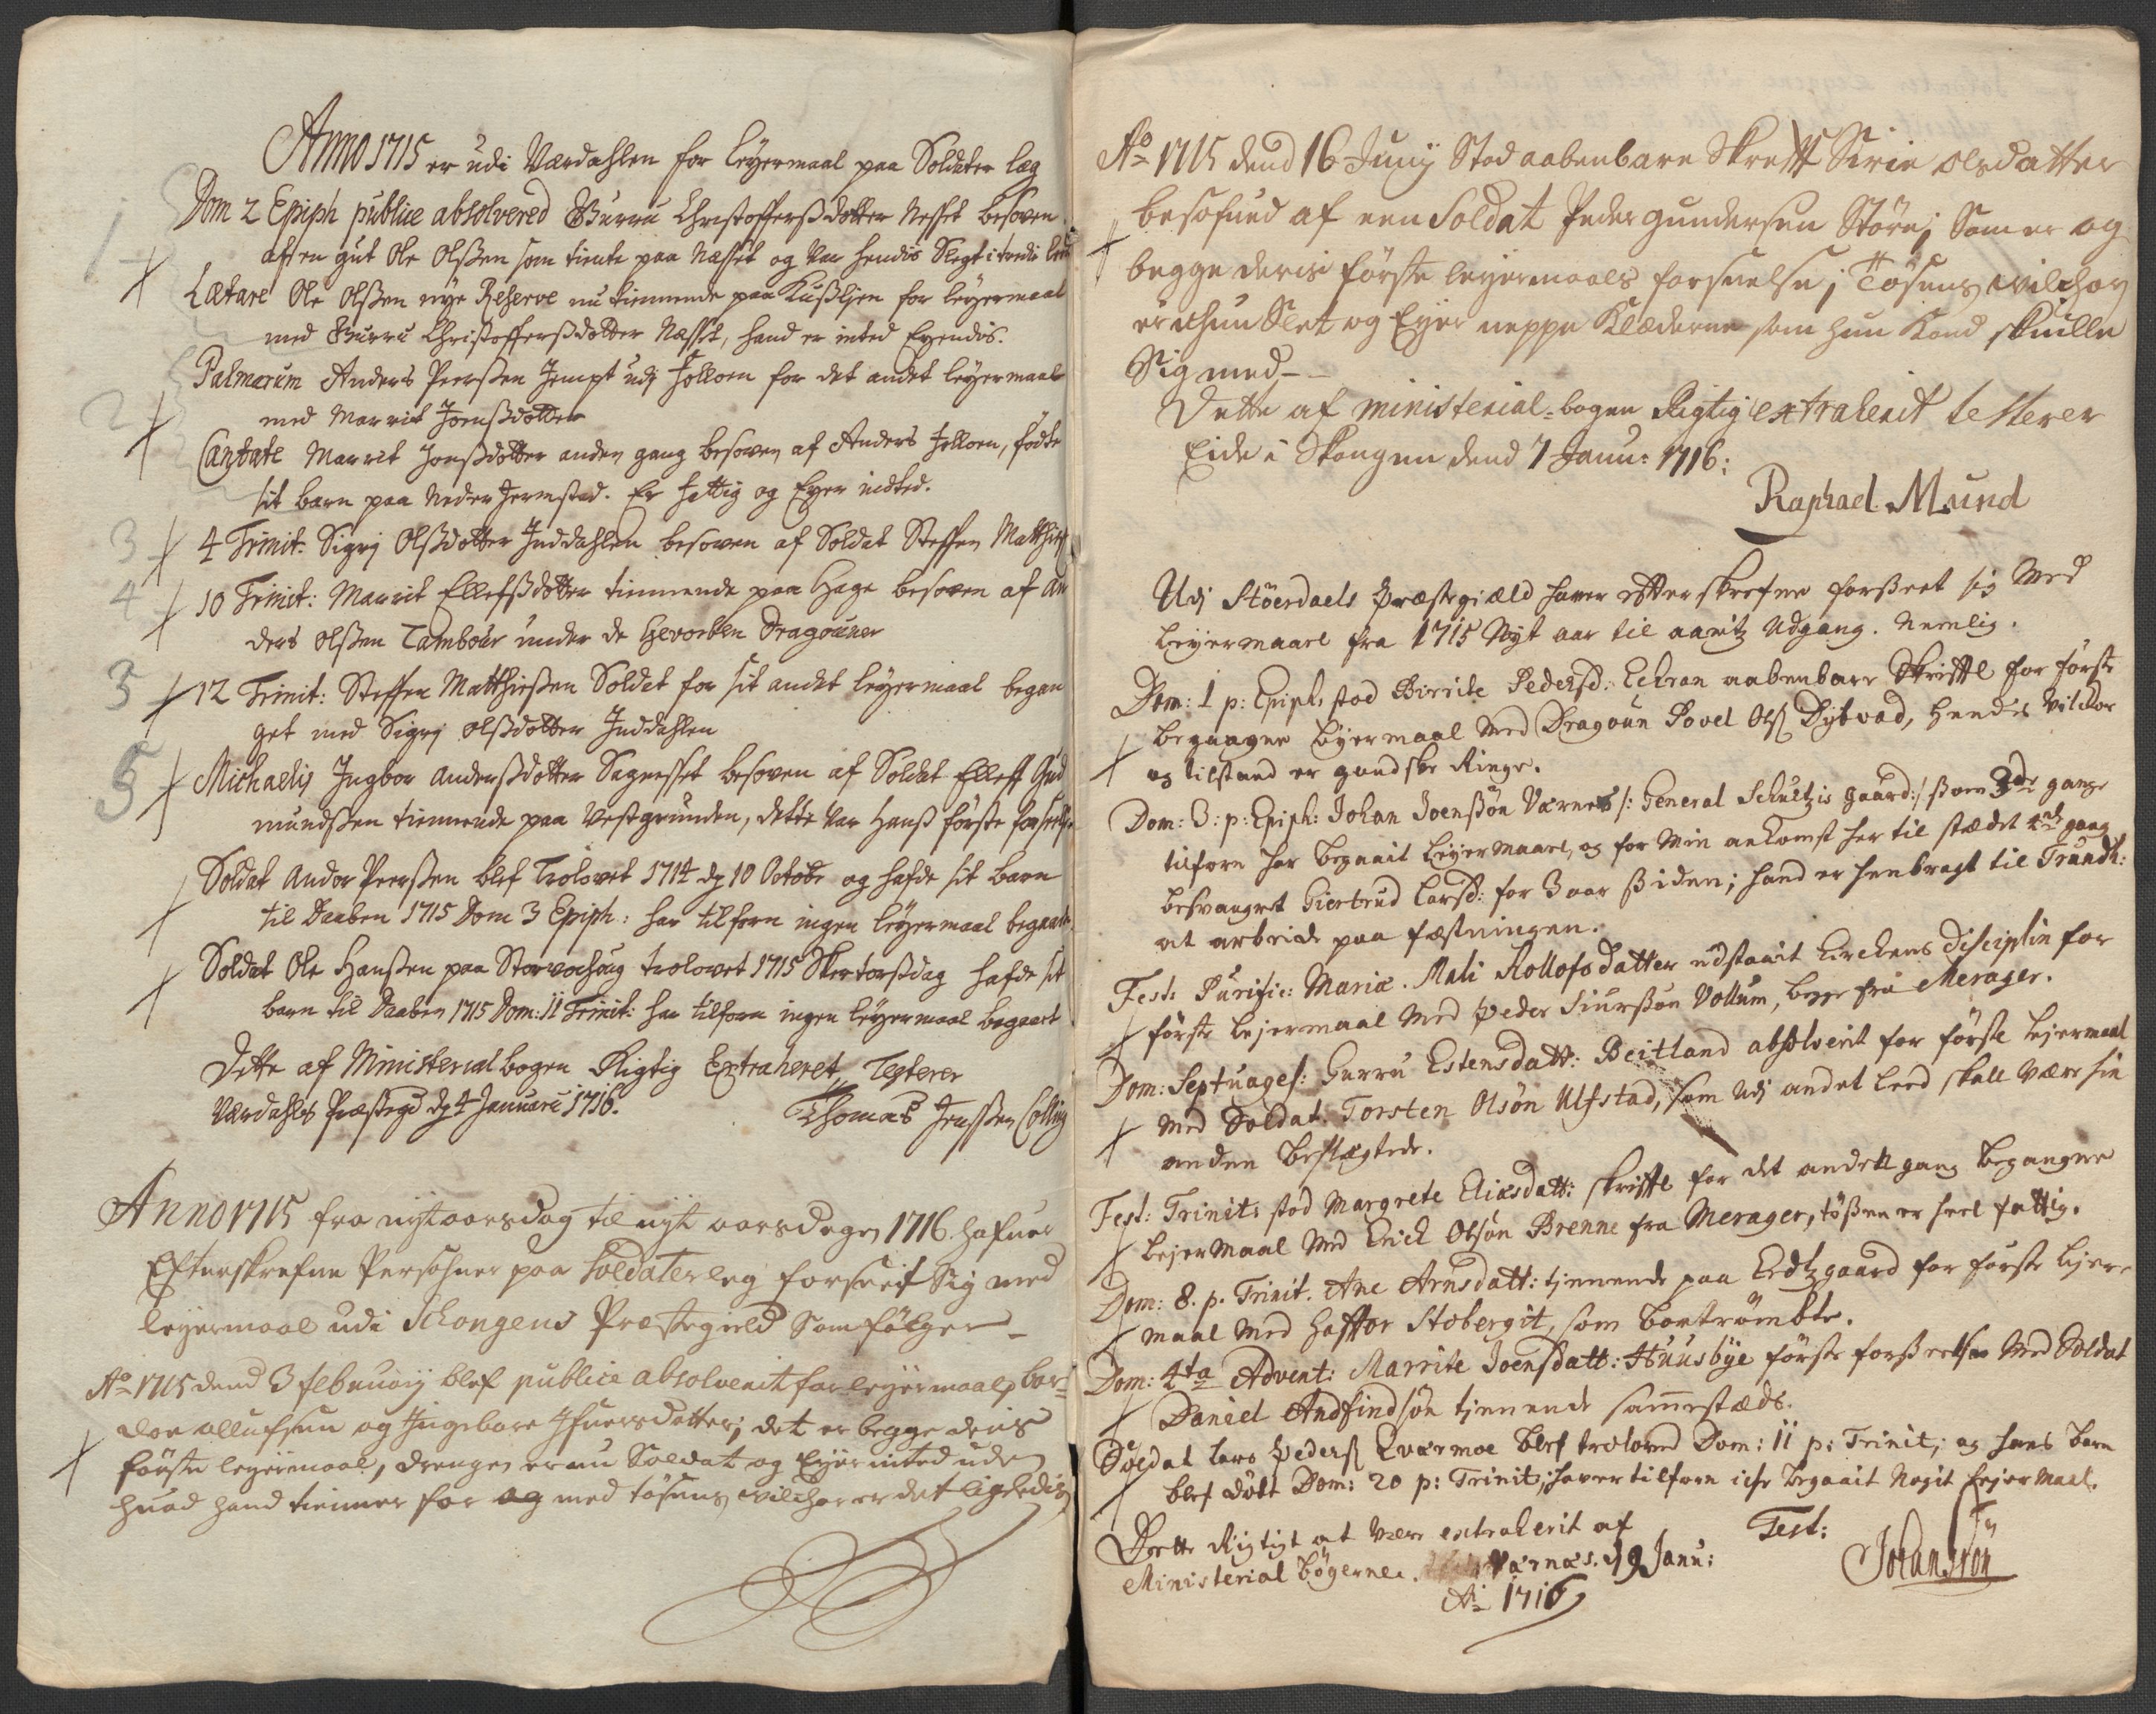 Anno 1715 er udi Værdahlen for leyermaal paa Soldater læg
Dom 2 Epiph publice absolvered Gurru Christoffersdotter Nesset besoven
af en gut Ole Olßen som tiente paa Næsset og var hendis Slegt i tredie leed
Lætare Ole Olßen nye Reserve nu tiennende paa Kußljen for leyermaal
med Gurru Christofferßdotter Næsset, hand er inted Eyendis.
Palmarum Anders Peerßen Jempt udj Holloen for det andet leyermaal
med Marrit Joenßdotter
Cantate Marrit Jonßdotter anden gang besoven af Anders Holloen, fødte
sit barn paa Neder Jermstad. Er fattig og Eyer indted.
4 Trinit. Sigrj Olßdotter Inddahlen besoven af Soldat Steffen Matthiesß
10 Trinit: Marrit Ellefßdotter tiennende paa Hage besoven af An
ders Olßen Tambour under de Hervorben Dragouner
12 Trinit: Steffen Matthießen Soldat for sit andet leyermaal began
get med Sigrj Olßdotter Inddahlen
Michaelis Ingbor Anderßdotter Sagnesset besoven af Soldat Elleff Gud
mundßen tiennende paa Vestgrunden, dette var Hanß første forseelse
Soldat Ander Peerßen blef Trolovet 1714 dj 10 Octobr og hafde sit barn
til Daaben 1715 Dom 3 Epiph: har tilforn ingen leyermaal begaaet
Soldat Ole Hanßen paa Storvohoug trolovet 1715 Skertorßdag hafde sit
barn til Daaben 1715 Dom: 11 Trinit: har tilforn ingen leyermaal begaaet
Dette af Ministerialbogen Rigtig Extraheret Testerer
Værdahls Præstegd dj 4 Januarii 1716.
Thomas Jenssen Collin
Anno 1715 fra nytaarsdag til nyt aarsdagen 1716. hafuer
Efterskrefne Persohner paa Soldaterleg forseet Sig med
leyermaal udi Schongens Præstegield Som følger
Ao 1715 dend 3 februarij blef publice absolverit for leyermaal, Hal-
dor ollufsen og Ingebore Ifuersdatter; det er begge deris
første leyermaal, drengen er nu Soldat og Eyer inted uden
huad hand tienner for og med tøsens vilchor er det ligeledis
Ao 1715 dend 16 Junij Stod aabenbare Skrift Sirie olsdatter
besofued af een Soldat Peder gundersen Støre; Som er og
begge deris første leyermaals forseelse; Tøsens vilchor
er hun Slet og Eyer neppe Klæderne som hun Kand skiulle
Sig med
Dette af ministerial-bogen Rigtig extraherit testerer
Eide i Skongen dend 7 Janu: 1716:
Raphael Mund
Udj Støerdaels Præstegiæld haver efterskrefne forseet sig med
Leyermaael fra 1715 Nyt aar til aaretz Udgang. Nemlig.
Dom: 1 p: Epiph: stod Birrite Pedersd: Eckran aabenbare Skriftte for første
begaagne Leyermaal med Dragoun Povel Ols: Dybvad, hendes vilckor
og tilstand er gandske Ringe.
Dom: 3: p: Epiph: Johan Joenßøn Værnes /: General Schultzis gaard:/ som 3de gange
tilforn har begaait Leyermaael, og for min ankomst her til stædet 4de gang
besvangret Giertrud Larsd: for 3 aar siden; hand er henbragt til Trundh:
at arbeide paa fæstningen.
Fest: Purific: Mariæ. Mali Rollofsdatter udstaait Kirckens disciplin for
første Leyermaal med Peder Siurßøn Vollum, begge fra Merager.
Dom: Septuages: Gurru Estensdatt: Beitland absolverit for første Leyermaal
med Soldat Torsten Olsøn Ulfstad, som udj andet Leed skall være hin
anden beslægtede.
Fest: Trinit: stod Margrete Eliæsdatt: skriftte for det andet gang begangne
Leyermaal med Erick Olsøn Brenne fra Merager, tøßen er heel fattig.
Dom: 8. p. Trinit. Ane Arnsdatt: tjenende paa Ledtzgaard for første Leyer-
maal med Haffor Stobergit, som bortrømbte.
Dom: 4ta Advent: Marrite Joensdatt: Huusbye første forseelse med Soldat
Daniel Andfindsøn tjenende samestæds.
Soldat Lars Peders: Qværmoe blef trolovet Dom: 11 p: Trinit, og hans barn
blef døbt Dom: 20 p: Trinit; haver tilforn icke begaait Nogit Leyermaal.
Dette Rigtigt at være extraherit af
Ministerial bøgerne. Værnæs. d 9 Janu:
Ao 1716
Test:
1
2
3
4
5
5